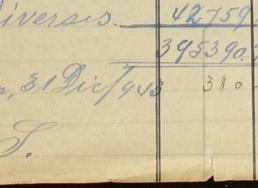 iverses. 42759
395390.
31 Dic/943 310
S.